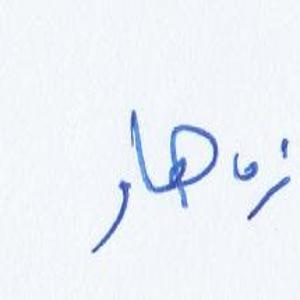 زنهار